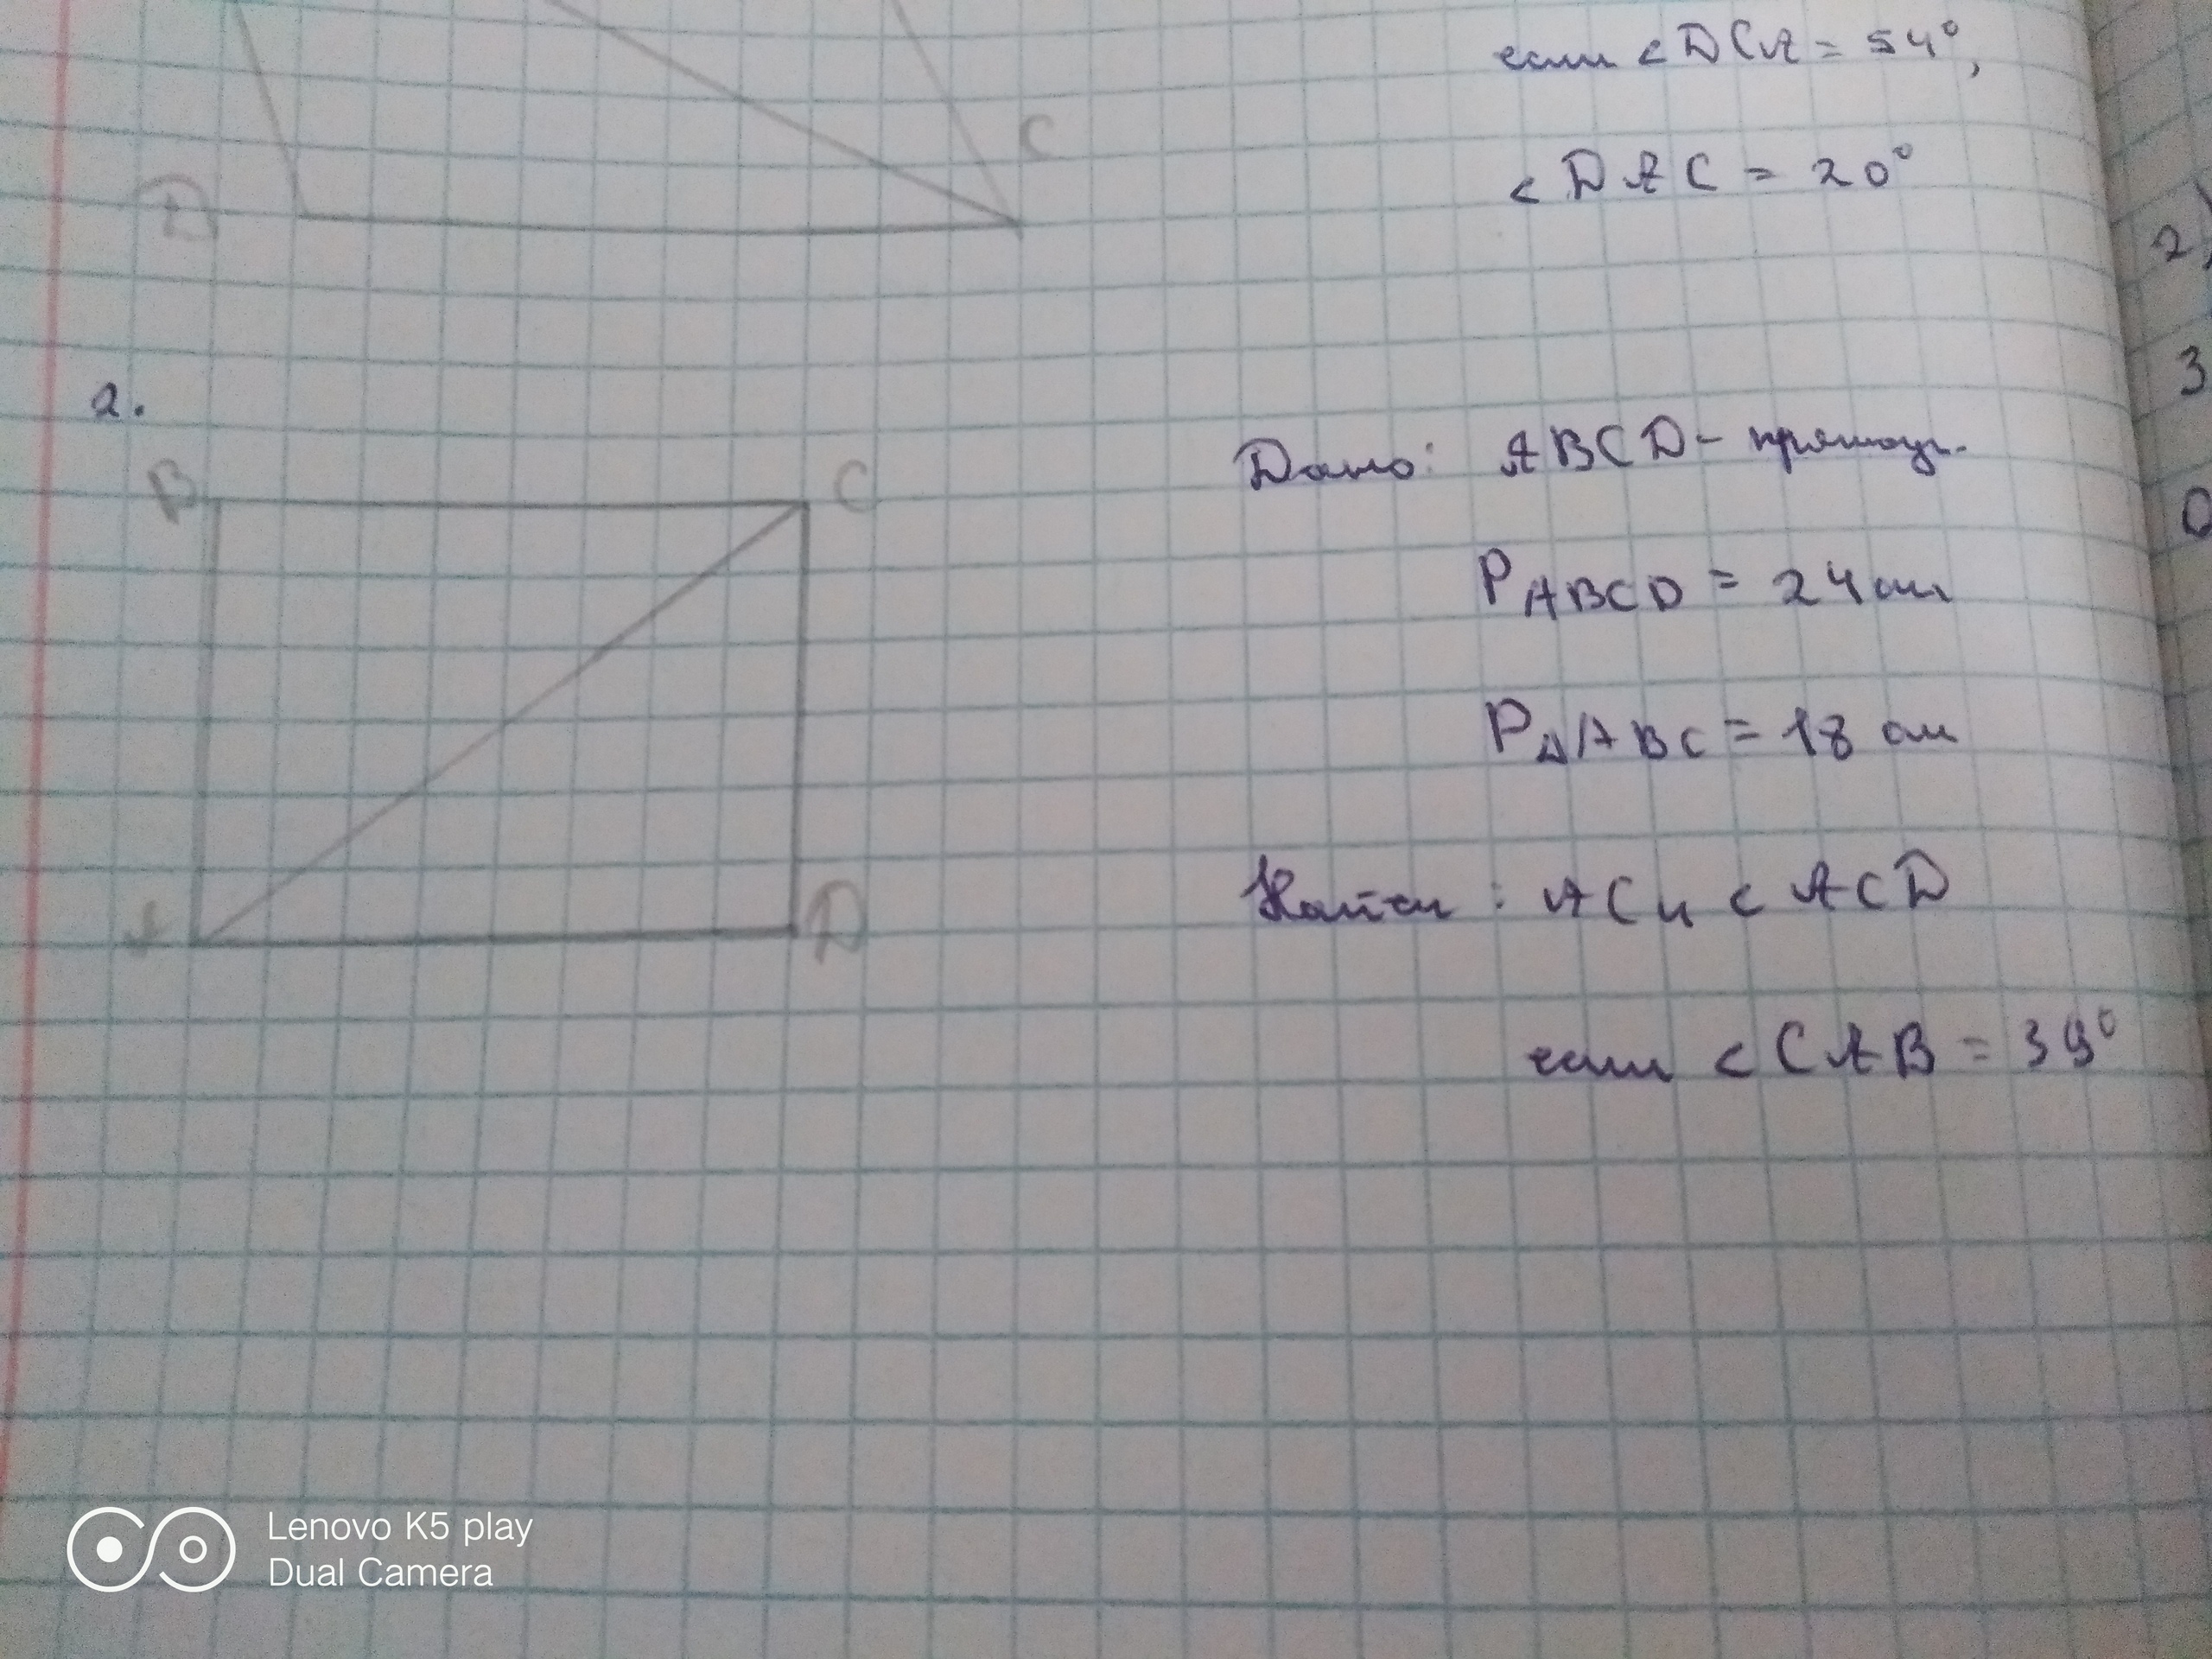 если < DCA = 54°,
C
< DAC = 20°
D
2)
3
2.
Дано: ABCD - прямоуг.
B C
0
P ABCD = 24 см
P △ABC = 18 см
Найти: AC и < ACD
A D
если < CAB = 39°
Lenovo K5 play
Dual Camera